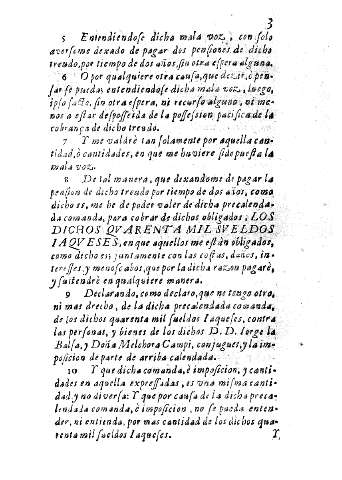 3
5 Entendiendose dicha mala voz, con solo
averseme dexado de pagar dos pensiones de dicho
treudo, por tiempo de dos años, sin otra espera alguna.
6 O por qualquiere otra causa, que dezir, ò pen-
sar se pueda; entendiendose dicha mala voz, luego,
ipso facto, sin otra espera, ni recurso alguno, ni me-
nos a estar desposseida de la possession pacifica de la
cobrança de dicho treudo.
7 Y me valdrè tan solamente por aquella can-
tidad, ò cantidades, en que me huviere sido puesta la
mala voz.
8 De tal manera, que dexandome de pagar la
pension de dicho treudo por tiempo de dos años, como
dicho es, me he de poder valer de dicha precalenda-
da comanda, para cobrar de dichos obligados, LOS
DICHOS QVARENTA MIL SVELDOS
IAQVESES, en que aquellos me están obligados,
como dicho es; juntamente con las costas, danos, in-
teresses, y menoscabos, que por la dicha razon pagarè,
y sustendrè en qualquiere manera.
9 Declarando, como declaro, que no tengo otro,
ni mas drecho, de la dicha precalendada comanda,
de los dichos quarenta mil sueldos Iaqueses, contra
las personas, y bienes de los dichos D. D. Iorge la
Balsa, y Doña Melchora Campi, conjuges, y la im-
posicion de parte de arriba calendada.
10 Y que dicha comanda, è imposicion, y canti-
dades en aquella expressadas, es vna misma canti-
dad, y no diversa: Y que por causa de la dicha preca-
lendada comanda, è imposicion, no se pueda enten-
der, ni entienda, por mas cantidad de los dichos qua-
renta mil sueldos Iaqueses. Y